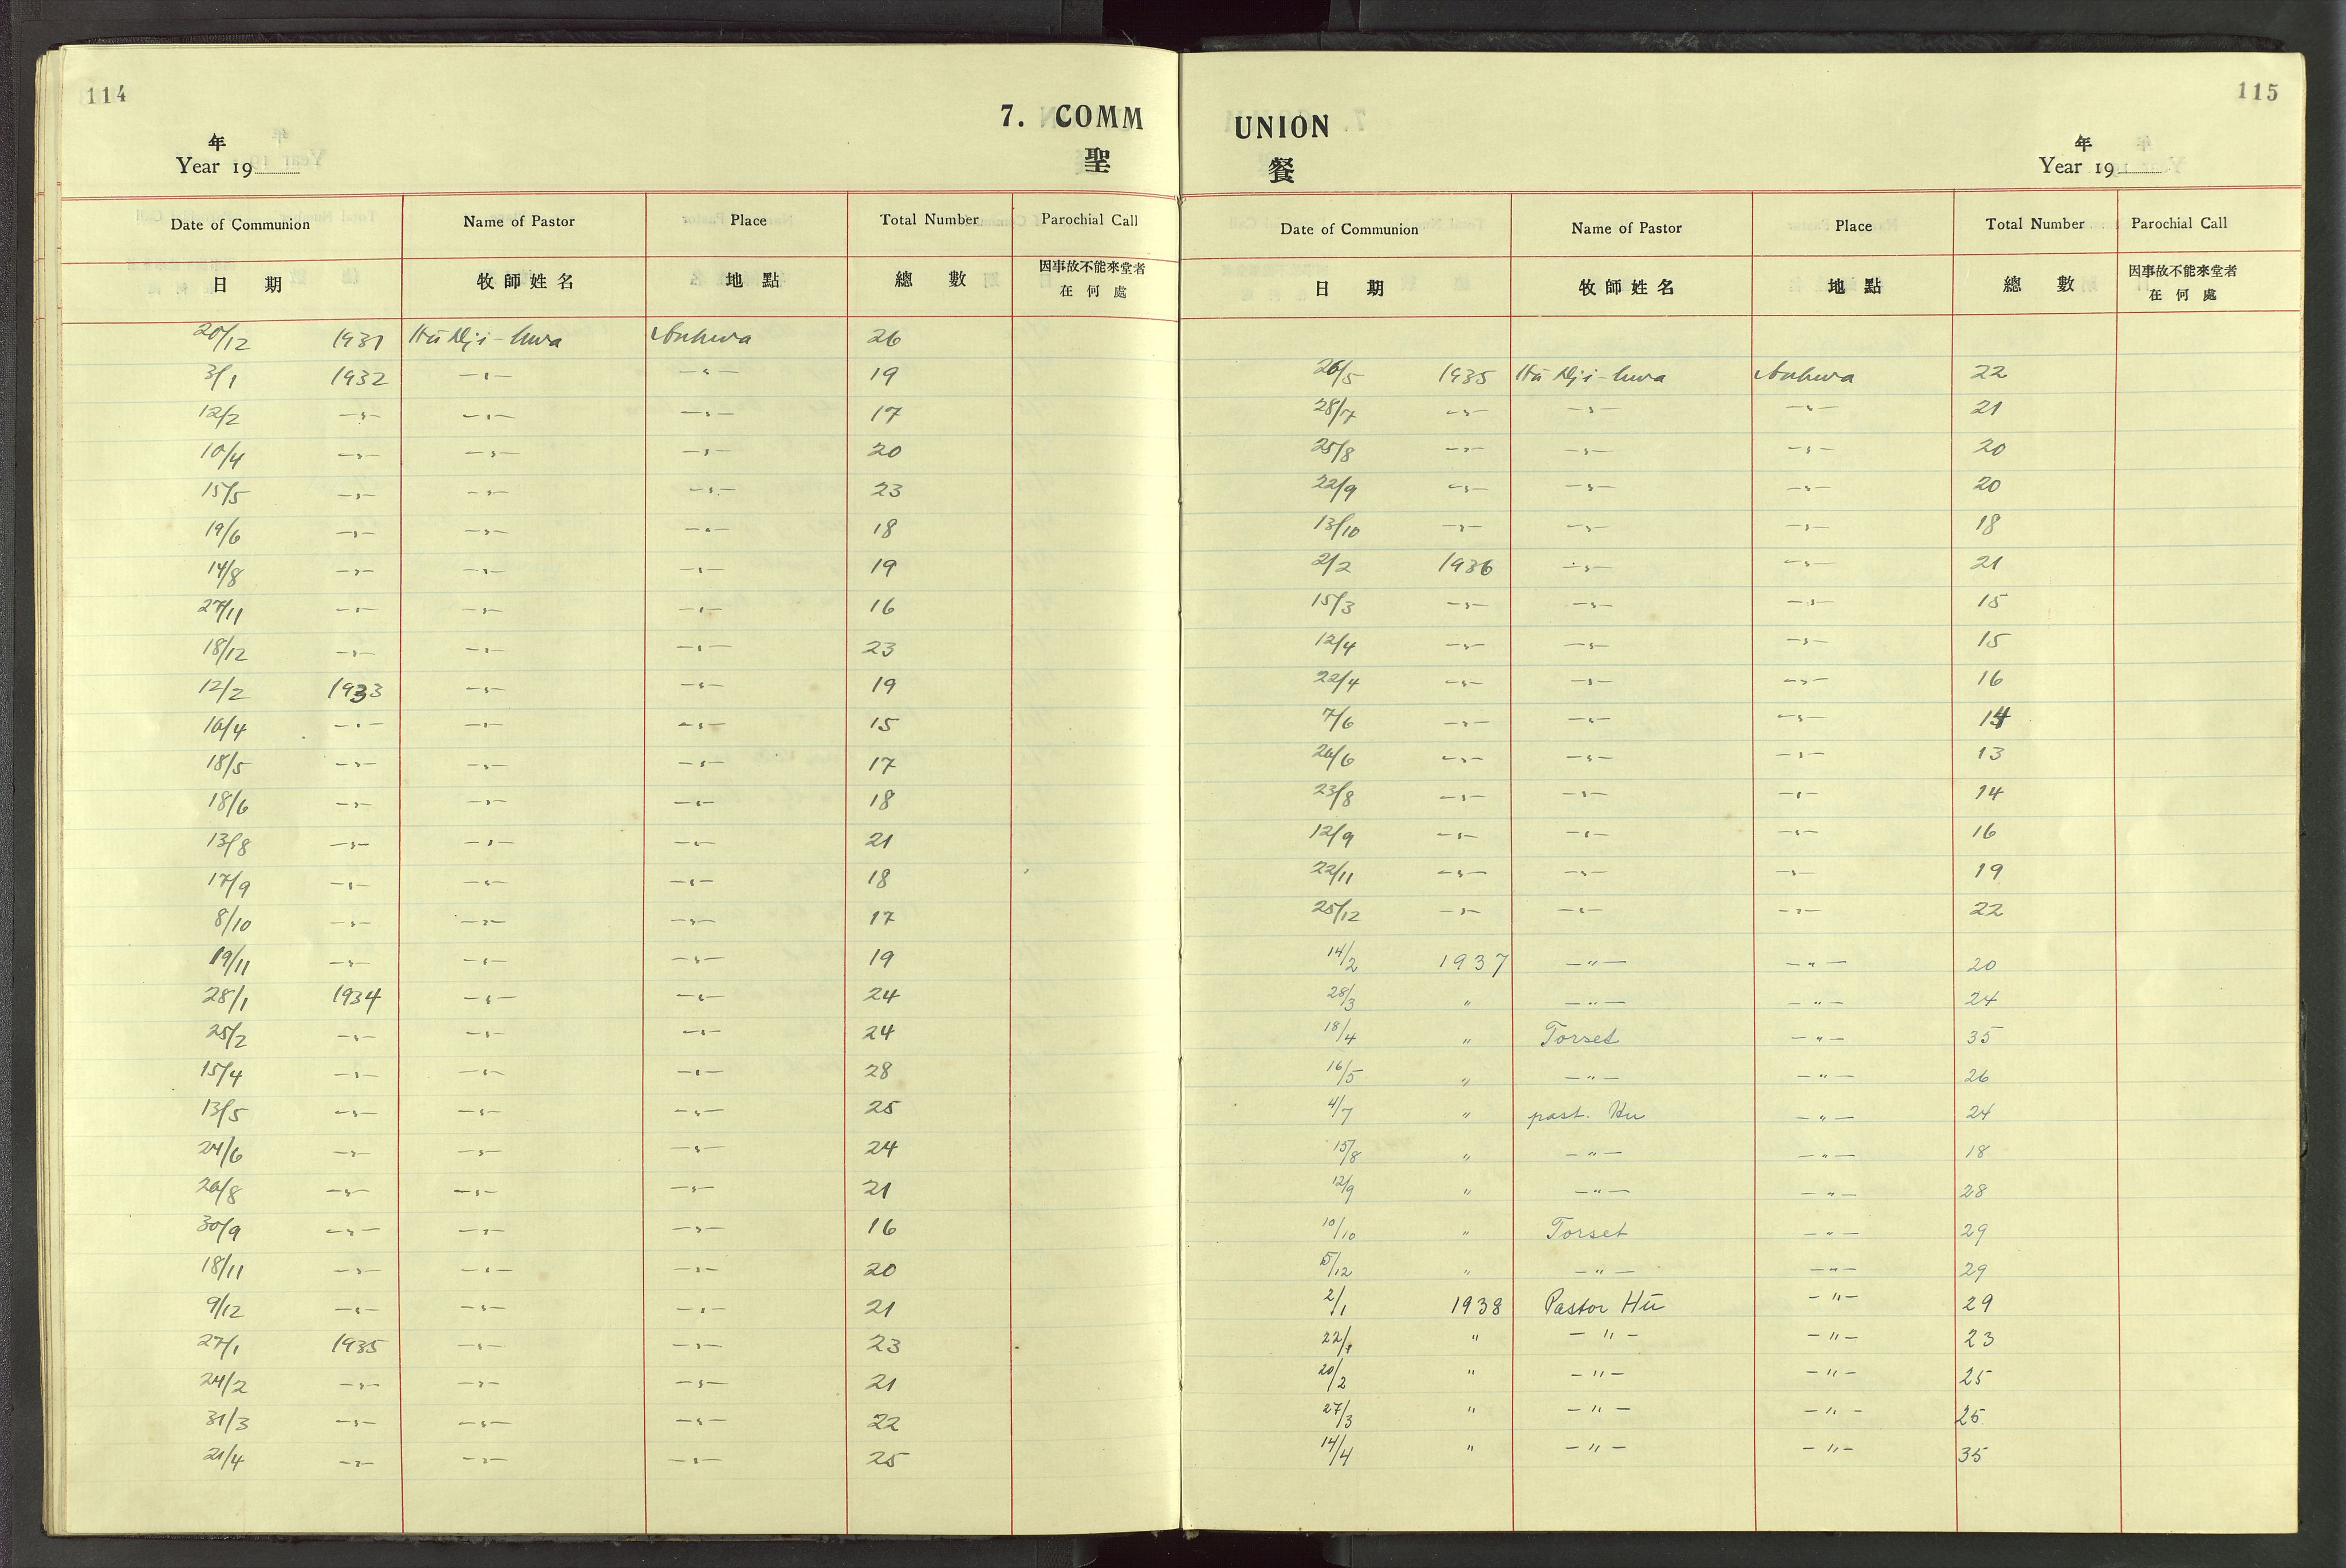 114
7. COMM
年
Year 19
聖
Date of Communion Name of Pastor Place Total Number Parochial Call
日 期 牧師姓名 地點 總數 因事故不能來堂者
在何處
20/12 1931 Hü Dji-hwa Anhwa 26
3/1 1932 -"- -"- 19
12/2 -"- -"- -"- 17
10/4 -"- -"- -"- 20
15/5 -"- -"- -"- 23
19/6 -"- -"- -"- 18
14/8 -"- -"- -"- 19
27/11 -"- -"- -"- 16
18/12 -"- -"- -"- 23
12/2 1933 -"- -"- 19
16/4 -"- -"- -"- 15
18/5 -"- -"- -"- 17
18/6 -"- -"- -"- 18
13/8 -"- -"- -"- 21
17/9 -"- -"- -"- 18
8/10 -"- -"- -"- 17
19/11 -"- -"- -"- 19
28/1 1934 -"- -"- 24
25/2 -"- -"- -"- 24
15/4 -"- -"- -"- 28
13/5 -"- -"- -"- 25
24/6 -"- -"- -"- 24
26/8 -"- -"- -"- 21
30/9 -"- -"- -"- 16
18/11 -"- -"- -"- 20
9/12 -"- -"- -"- 21
27/1 1935 -"- -"- 23
24/2 -"- -"- -"- 21
31/3 -"- -"- -"- 22
21/4 -"- -"- -"- 25
115
UNION
年
Year 19
餐
Date of Communion Name of Pastor Place Total Number Parochial Call
日 期 牧師姓名 地點 總數 因事故不能來堂者
在何處
26/5 1935 Hü Dji-hwa Anhwa 22
28/7 -"- -"- -"- 21
25/8 -"- -"- -"- 20
22/9 -"- -"- -"- 20
13/10 -"- -"- -"- 18
2/2 1936 -"- -"- 21
15/3 -"- -"- -"- 15
12/4 -"- -"- -"- 15
22/4 -"- -"- -"- 16
7/6 -"- -"- -"- 14
26/6 -"- -"- -"- 13
23/8 -"- -"- -"- 14
12/9 -"- -"- -"- 16
22/11 -"- -"- -"- 19
25/12 -"- -"- -"- 22
14/2 1937 -"- -"- 20
28/3 " -"- -"- 24
18/4 " Torset -"- 35
16/5 " -"- -"- 26
4/7 " past. Hu -"- 24
15/8 " -"- -"- 18
12/9 " -"- -"- 28
10/10 " Torset -"- 29
5/12 " -"- -"- 29
2/1 1938 Pastor Hü -"- 29
22/1 " -"- -"- 23
20/2 " -"- -"- 25
27/3 " -"- -"- 25
14/4 " -"- -"- 35